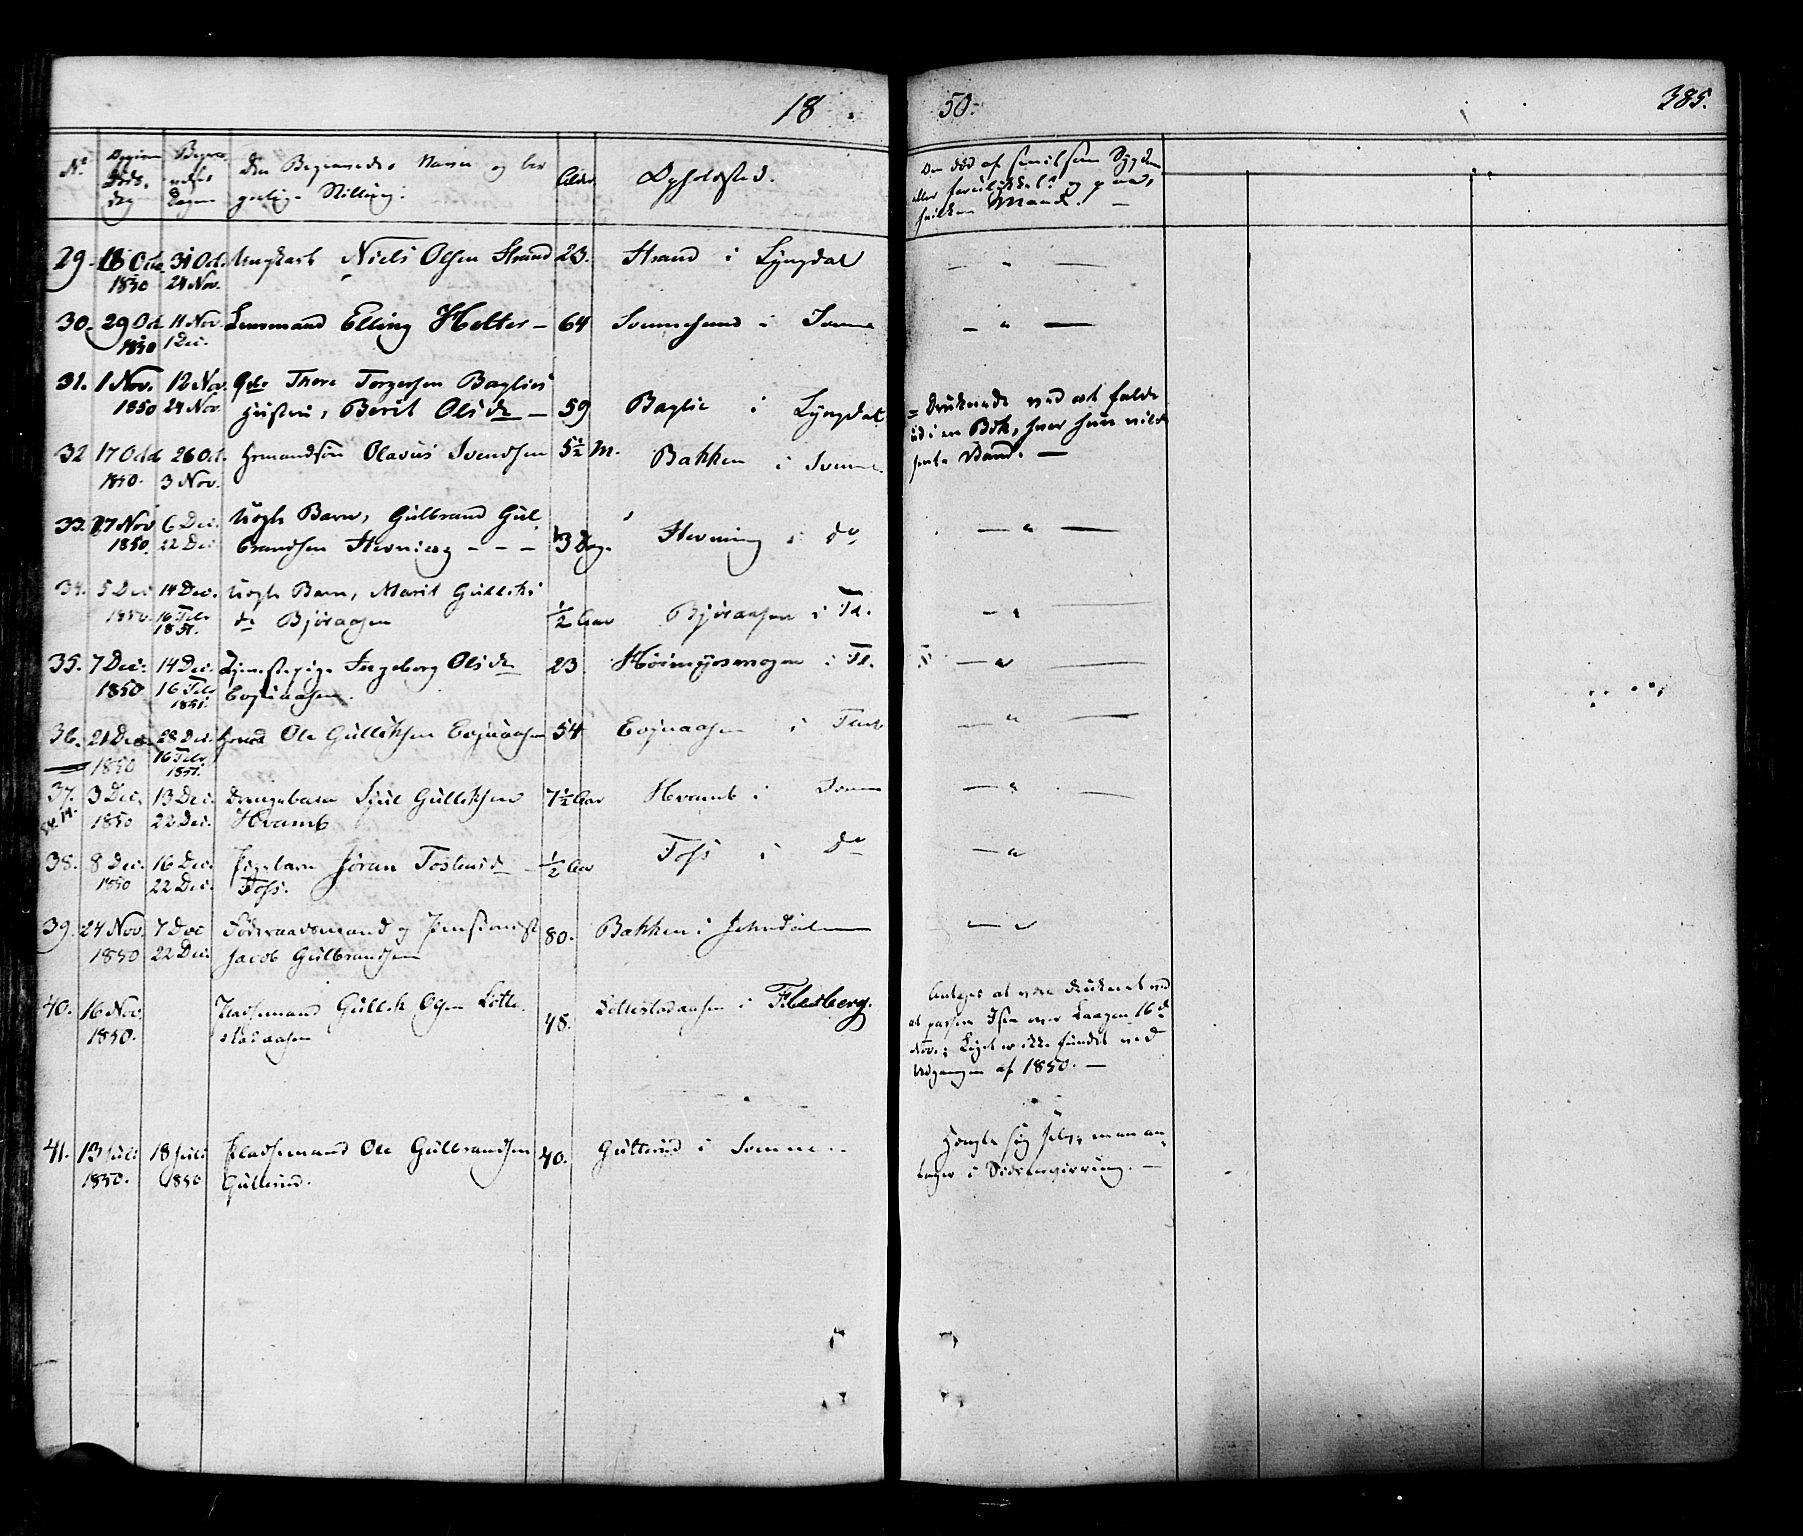 18 50. 385.
No Døds- dag Begra- velses Dagen Den Begravedes Navn og bor- gerlig Stilling. Alder. Opholdsted. Om død af smitsom Sygdom eller forulykket? og paa hvilken Maade. —
29. 18 Octr 1850 31 Oct. 24 Nov. Ungkarl Niels Olsen Strand 23. Strand i Lyngdal — " —
30. 29 Oct. 1850 11 Nov. 1 Dec. Lensmand Elling Holter — 64 Svennesund i Svenne — " —
31. 1 Nov. 1850 12 Nov. 24 Nov. Gdr Thore Torgersen Baglies
Hustru, Berit Olsdr — 59 Baglie i Lyngdal = Druknede ved at falde
ud i en Bæk, hvor hun vilde
hente Vand. —
32 17 Oct 1850. 26 Oct. 3 Nov. Huusmandssøn Olavus Svendsen 5½ M. Bakken i Svenne
33. 27 Nov 1850. 6 Dec. 22 Dec Uægte Barn, Gulbrand Gul-
brandsen Hevning - - - 3 Dag. Hevning i do — " —
34. 5 Dec 1850. 14 Dec. 16 Febr 1851. Uægte Barn, Marit Gulliks-
dr Bjøraasen ½ Aar Bjøraasen i Fl. — "
35. 7 Dec: 1850 14 Dec. 16 Febr 1851. Tjenestepige Ingeborg Olsdr
Evjuaasen. 23 Høimyrsmogen i Fl. — " —
36. 21 Dec. 1850 28 Dec. 16 Febr. 1851. Hmd Ole Gulliksen Evjuaasen 54 Evjuaasen i Flesb — " —
37. 3 Dec. 1850 13 Dec. 22 Dec. Drengebarn Sjul Gulliksen
Hvamb 7½ Aar Hvamb i Svenne — " —
38. 8 Dec. 1850 16 Dec. 22 Dec. Pigebarn Jøran Tostensdr —
Foss. ½ Aar Foss i do — "
39. 24 Nov. 1850 7 Dec 22 Dec. Føderaadsmand og Pensionist
Jacob Gulbrandsen 80. Bakken i Johndalen — "
40. 16 Nov. 1850. Pladsemand Gullik Olsen Lotte-
stadaasen 48. Lottestadaasen i Flesberg. Antages at være druknet ved
at passere Isen over Laagen 16de
Nov.; Liget er ikke fundet ved
Udgangen af 1850. —
41. 13 Juli 1850. 18 Juli 1850 Pladsemand Ole Gulbrandsen
Gullerud. 40. Gullerud i Svenne. Hængte sig selv, man an-
tager i Sindsforvirring. —